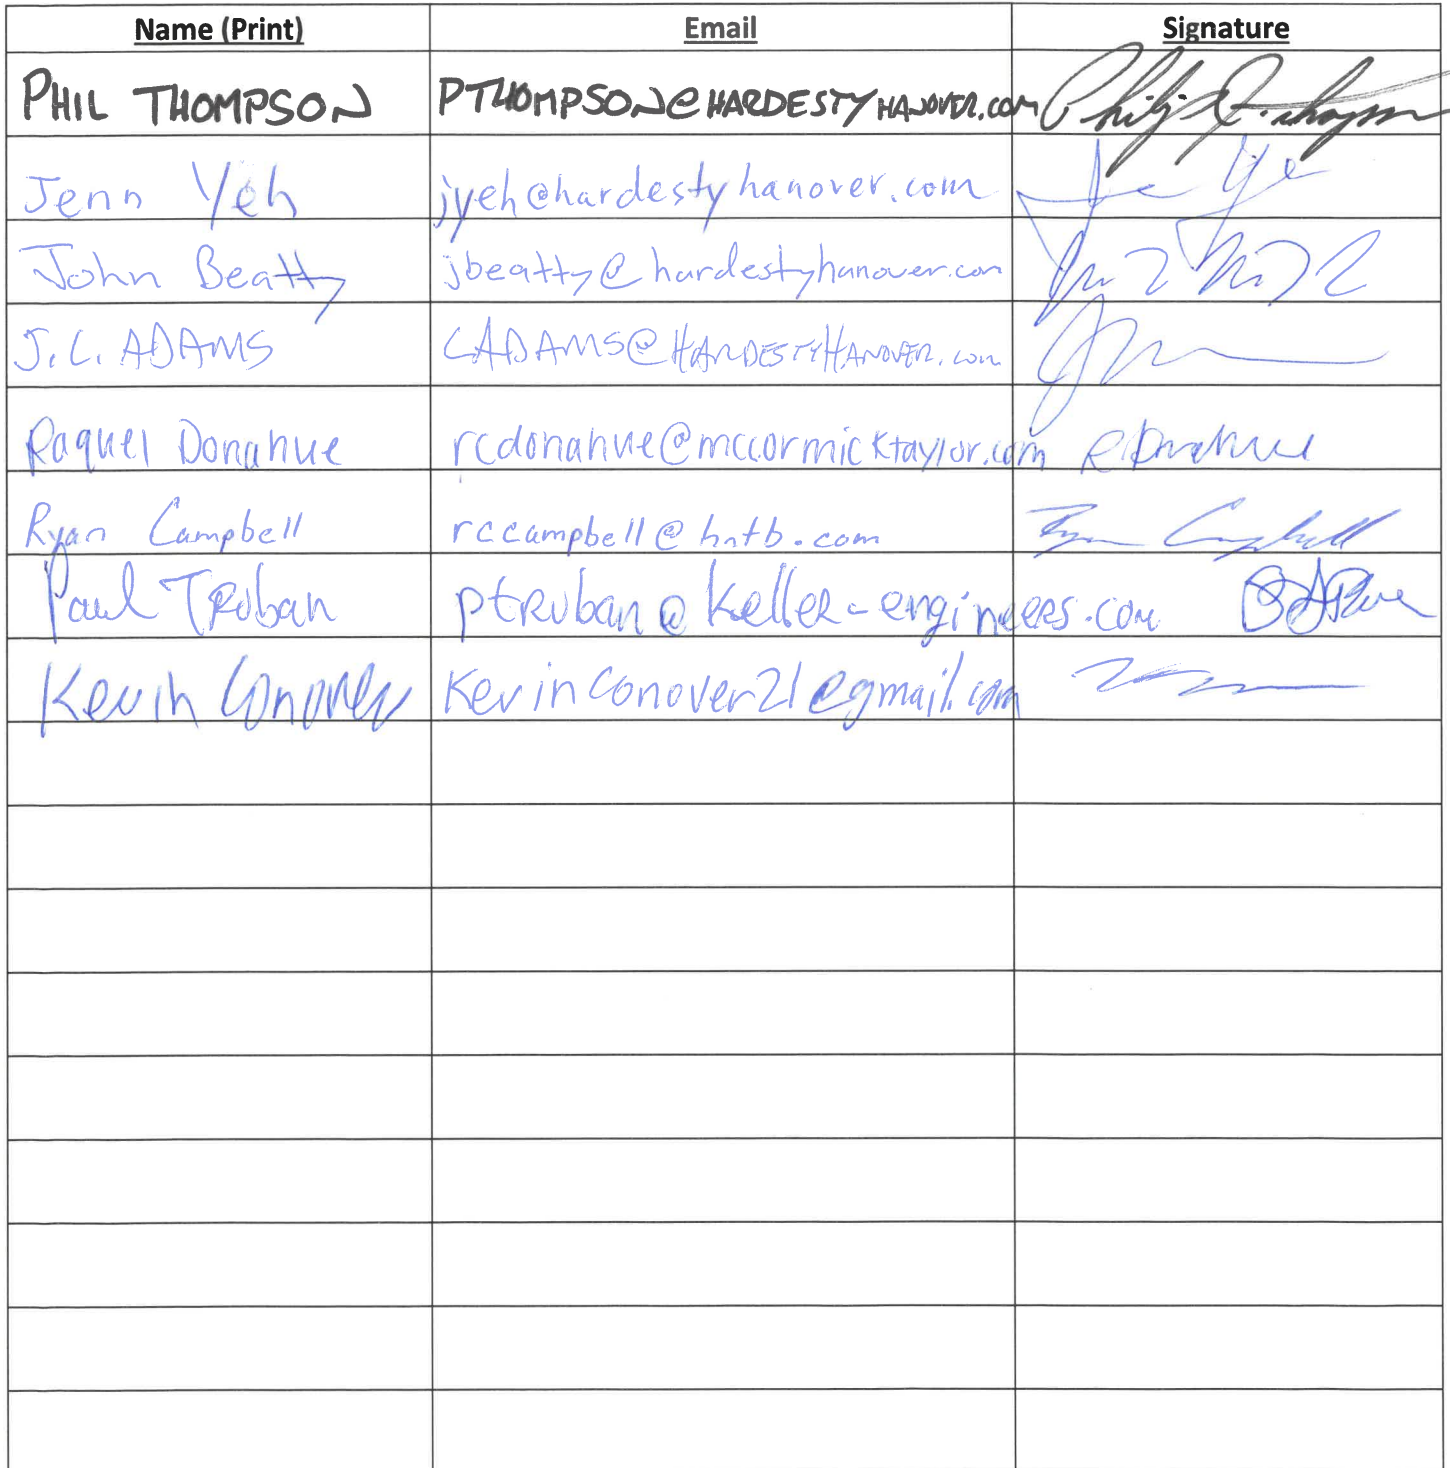 Name (Print) Email Signature
PHIL THOMPSON PTHOMPSON@HARDESTYHANOVER.COM
Jenn Yeh jyeh@hardestyhanover.com
John Beatty jbeatty@hardestyhanover.com
J.C. ADAMS CADAMS@HARDESTYHANOVER.com
Raquel Donahue rcdonahue@mccormicktaylor.com RDonahue
Ryan Campbell rccampbell@hntb.com Ryan Campbell
Paul TRuban ptRuban@KelleR-engineeRs.com
Kevin Conover Kevinconover21@gmail.com